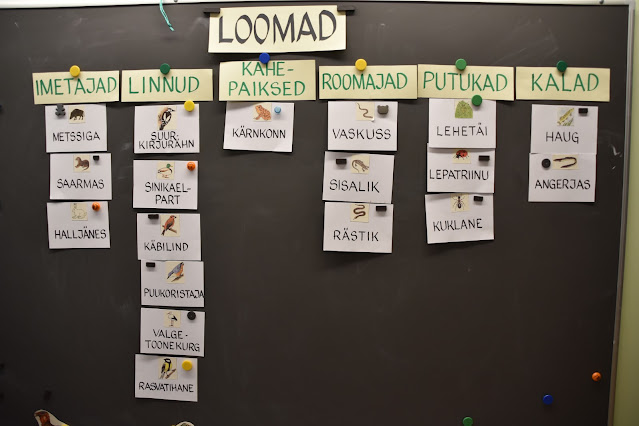 LOOMAD
IMETAJAD
METSSIGA
SAARMAS
HALLJÄNES
LINNUD
SUUR-
KIRJURÄHN
SINIKAEL-
PART
KÄBILIND
PUUKORISTAJA
VALGE-
TOONEKURG
RASVATIHANE
KAHE-
PAIKSED
KÄRNKONN
ROOMAJAD
VASKUSS
SISALIK
RÄSTIK
PUTUKAD
LEHETÄI
LEPATRIINU
KUKLANE
KALAD
HAUG
ANGERJAS